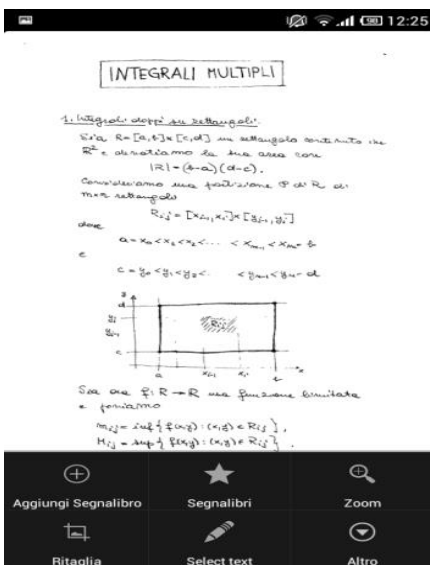 98 12:25
INTEGRALI MULTIPLI
1. Integrali doppi su rettangoli.
Sia R=[a,b]×[c,d] un rettangolo contenuto in
R² e denotiamo la sua area con
|R| = (b-a)(d-c).
Consideriamo una partizione P di R di
m×n rettangoli
Rij = [xi-1,xi]×[yj-1,yj]
dove
a=x0<x1<x2<... <xm-1<xm=b
e
c=y0<y1<y2<. <yn-1<yn=d
y
d
yj
yj-1
Rij
c
a xi-1 xi b x
Sia ora f:R→R una funzione limitata
e poniamo
mij = inf{ f(x,y) : (x,y) ∈ Rij },
Mij = sup{ f(x,y) : (x,y) ∈ Rij }.
Aggiungi Segnalibro Segnalibri Zoom
Ritaglia Select text Altro